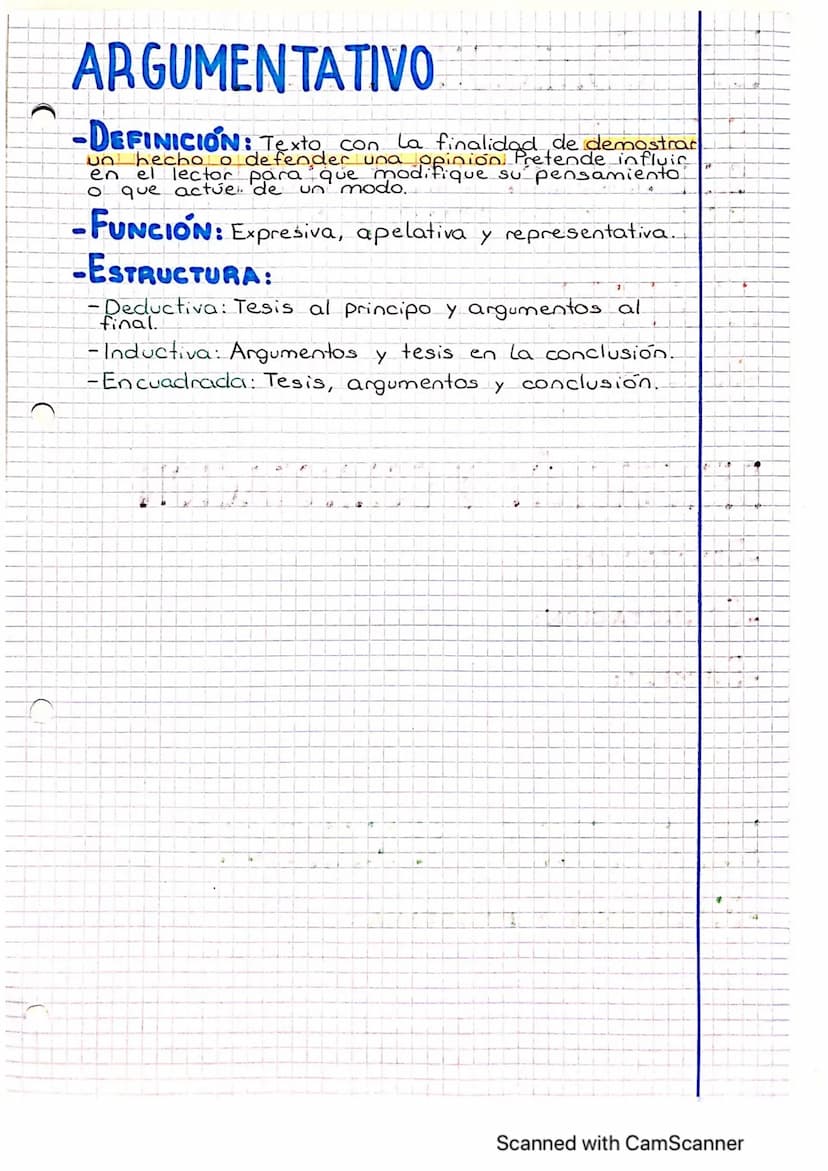 ARGUMENTATIVO
-DEFINICIÓN: Texto con la finalidad de demostrar
un hecho o defender una opinión. Pretende influir
en el lector para que modifique su pensamiento
o que actúe de un modo.
-FUNCIÓN: Expresiva, apelativa y representativa.
-ESTRUCTURA:
-Deductiva: Tesis al principo y argumentos al
final.
-Inductiva: Argumentos y tesis en la conclusión.
-Encuadrada: Tesis, argumentos y conclusión.
Scanned with CamScanner